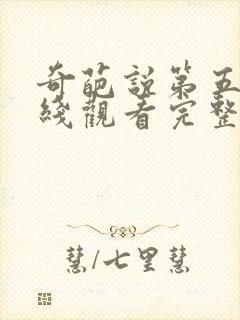 奇葩說第五
綫觀看完整
慧/七里慧